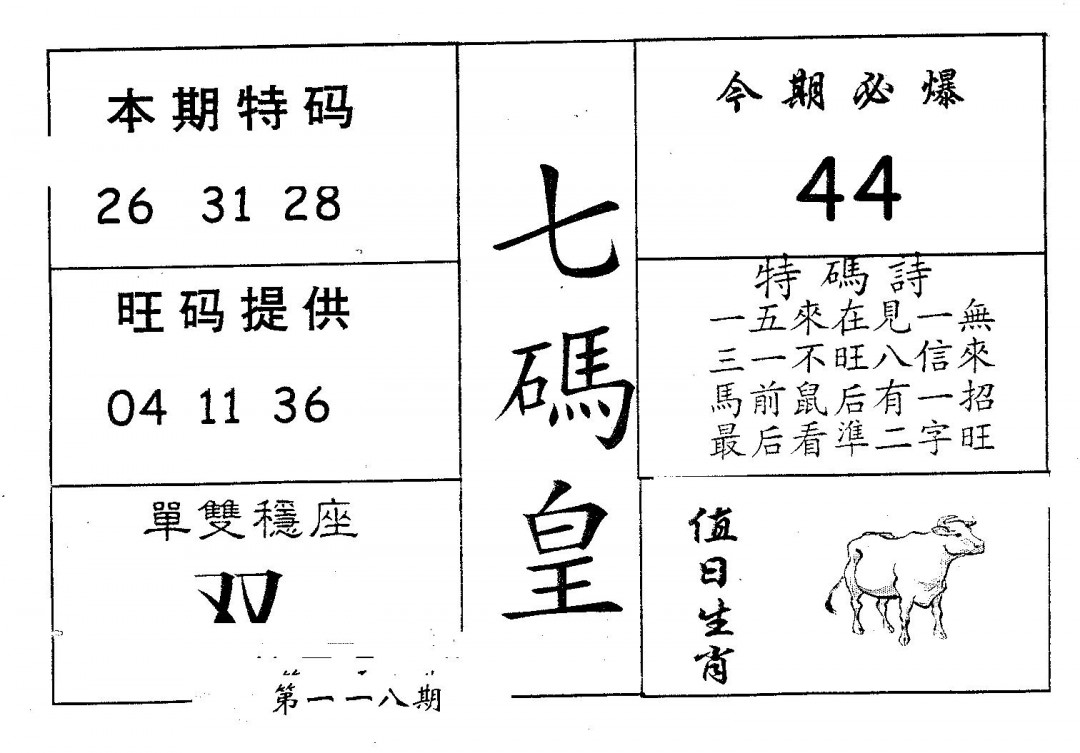 本期特码
26 31 28
旺码提供
04 11 36
單雙穩座
双
第一一八期
七碼皇
今期必爆
44
特碼詩
一五來在見一無
三一不旺八信來
馬前鼠后有一招
最后看準二字旺
值日生肖